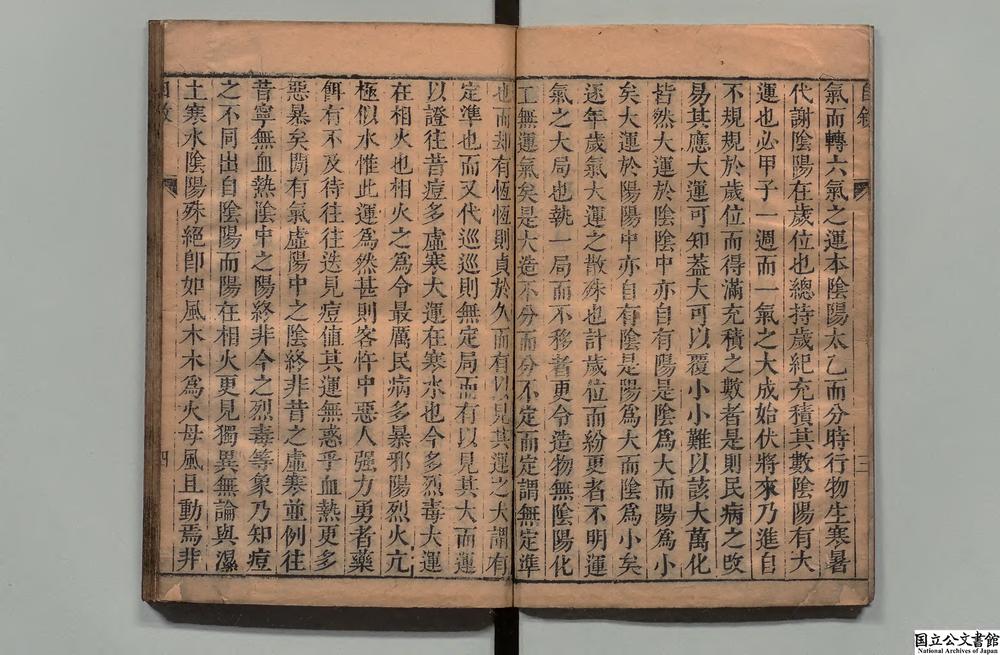 氣而轉六氣之運本陰陽太乙而分時行物生寒暑
代謝陰陽在歲位也總持歲紀充積其數陰陽有大
運也必甲子一週而一氣之大成始伏將來乃進自
不規規於歲位而得滿充積之數者是則民病之改
易其應大運可知蓋大可以覆小小難以該大萬化
皆然大運於陰陰中亦自有陽是陰爲大而陽爲小
矣大運於陽陽中亦自有陰是陽爲大而陰爲小矣
逐年歲氣大運之散殊也計歲位而紛更者不明運
氣之大局也執一局而不移者更令造物無陰陽化
工無運氣矣是大造不分而分不定而定謂無定準
也而却有恆恆則貞於久而有以見其運之大謂有
定準也而又代巡巡則無定局而有以見其大而運
以證往昔痘多虛寒大運在寒水也今多烈毒大運
在相火也相火之爲令最厲民病多暴邪陽烈火亢
極似水惟此運爲然甚則客忤中惡人强力勇者藥
餌有不及待往往迭見痘值其運無惑乎血熱更多
惡暴矣間有氣虛陽中之陰終非昔之虛寒並例往
昔寧無血熱陰中之陽終非今之烈毒等象乃知痘
之不同出自陰陽而陽在相火更見獨異無論與濕
土寒水陰陽殊絕卽如風木木爲火母風且動焉非
三
四
国立公文書館
National Archives of Japan